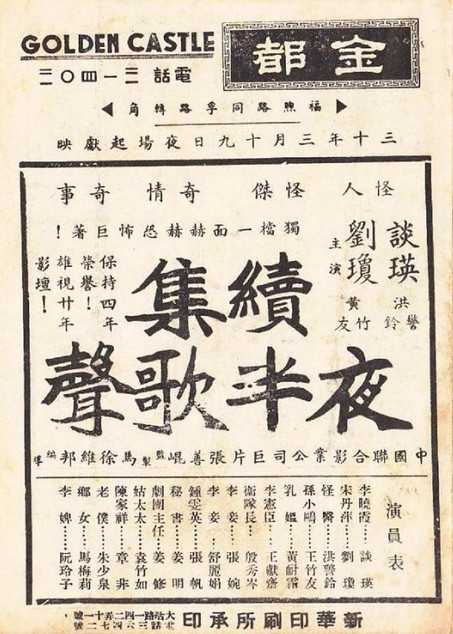 GOLDEN CASTLE
金都
電話三一四〇三
福煦路同孚路轉角
三十年三月十九日夜場起獻映
怪人 怪傑 奇情 奇事
獨檔一面赫赫恐怖巨著！
談瑛
劉瓊
主演
洪警鈴
黃竹友
保持四年榮譽！
雄視廿年影壇！
續集
夜半歌聲
中國聯合影業公司巨片張善琨監製馬徐維邦編導
演員表
李曉霞 談瑛
宋丹萍 劉瓊
怪醫 洪警鈴
孫小鷗 王竹友
乳媼 黃耐霜
李憲臣 王獻齋
衛隊長 殷秀岑
李妾 張婉
李妾 舒麗娟
鍾雯英 張帆
秘書 姜明
劇團主任 姜修
姑太太 袁竹如
陳家祥 章非
老僕 朱少泉
鄉女 馬梅莉
李婢 阮玲子
新華印刷所承印